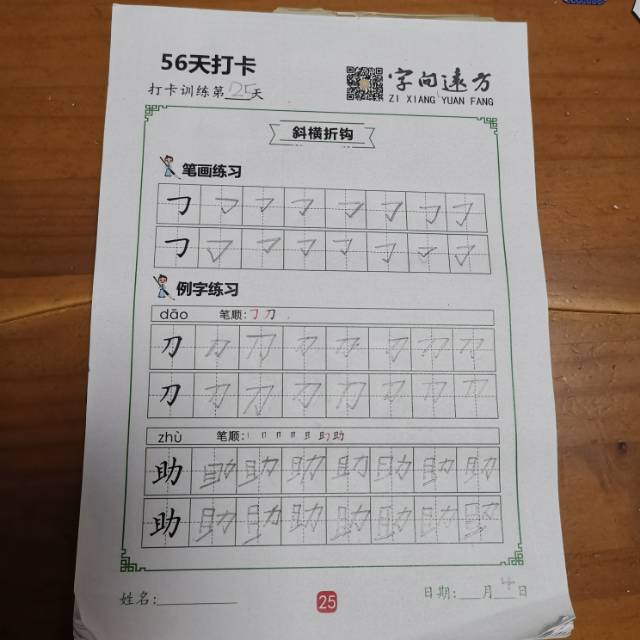 56天打卡
打卡训练第25天
字向远方
ZI XIANG YUAN FANG
斜横折钩
笔画练习
例字练习
dāo 笔顺:㇆刀
刀刀刀刀刀刀刀刀
刀刀刀刀刀刀刀刀
zhù 笔顺:
助助助助助助助助
助助助助助助助助
姓名:
25
日期: 月4日